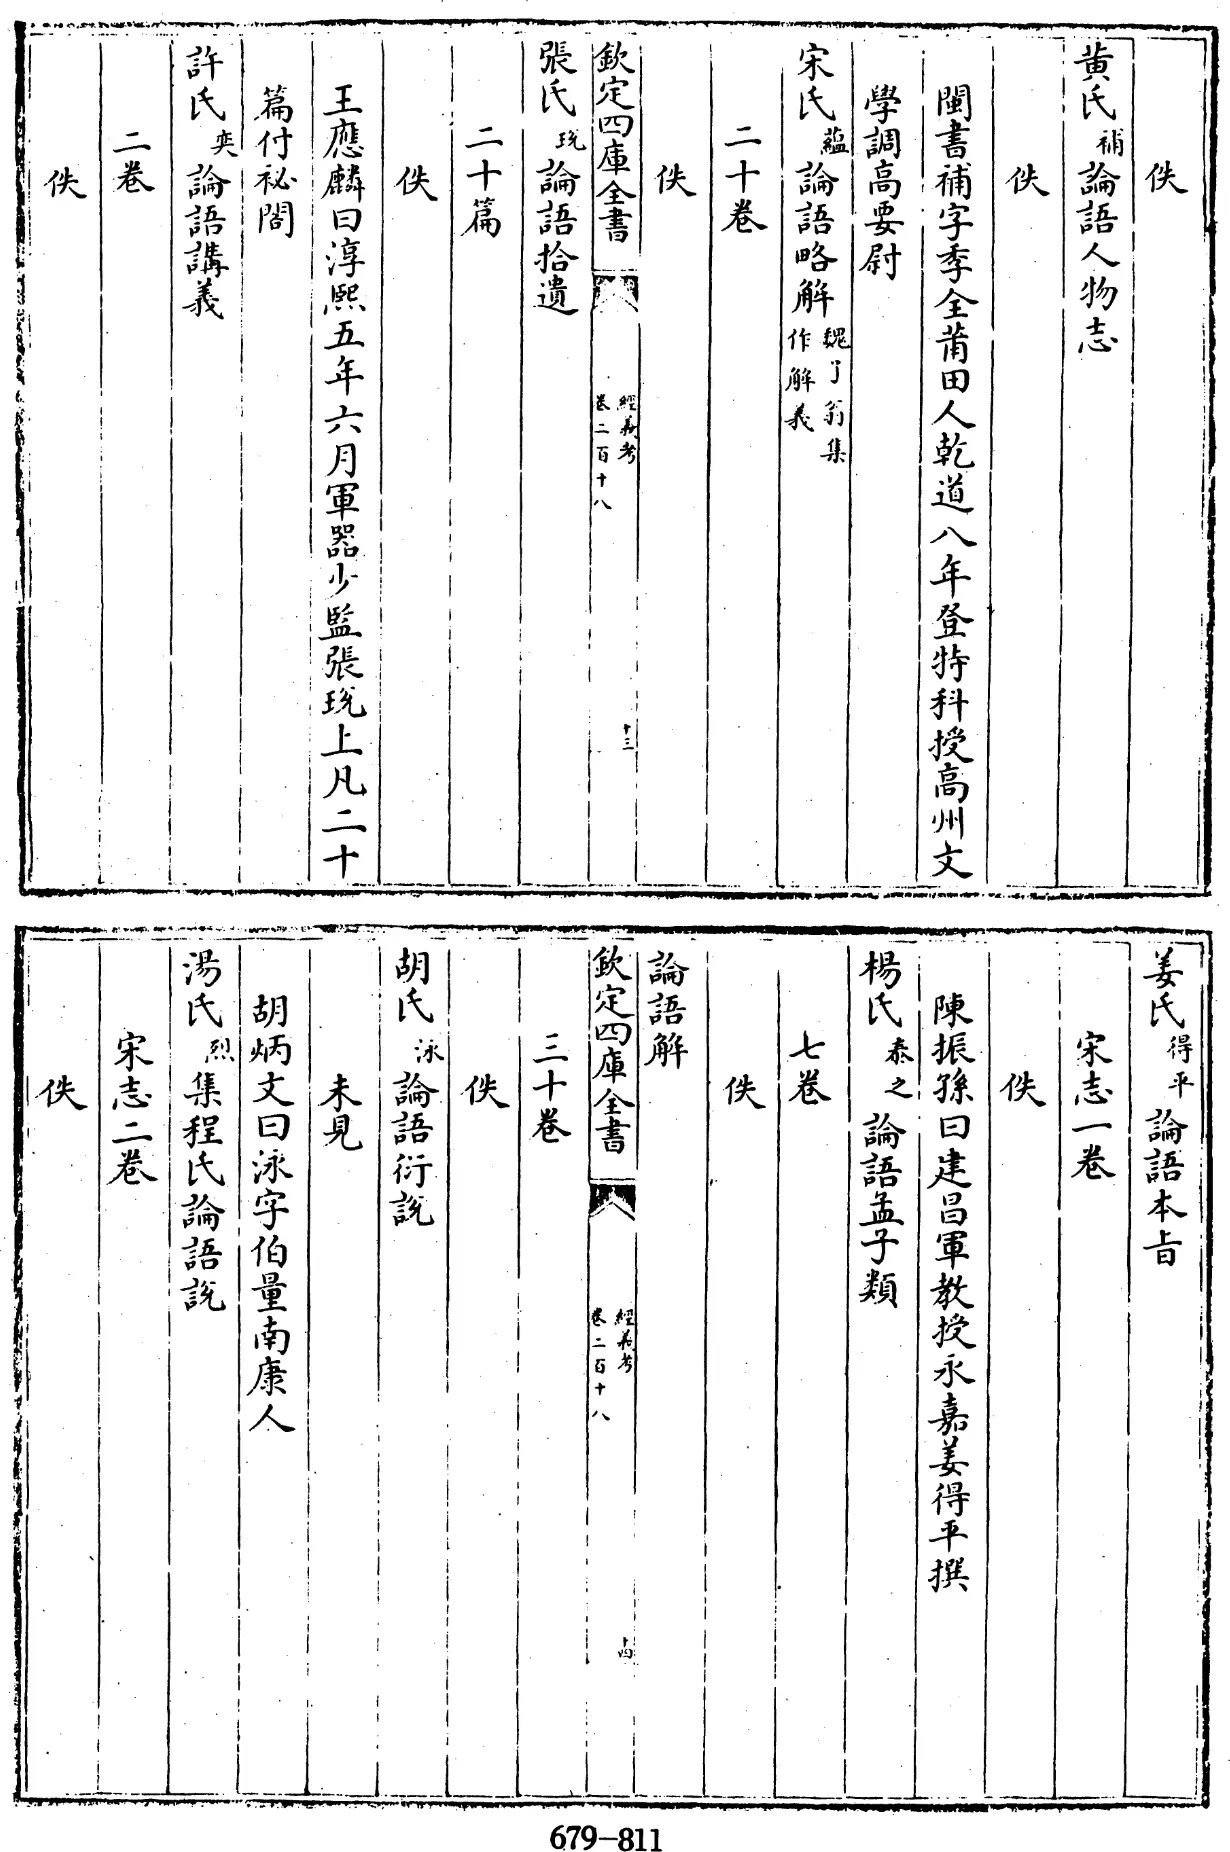 佚
黄氏補論語人物志
佚
閩書補字季全莆田人乾道八年登特科授高州文
學調高要尉
宋氏藴論語略解魏了翁集作解義
二十卷
佚
欽定四庫全書
經義考
卷二百十八
十三
張氏珖論語拾遺
二十篇
佚
王應麟曰淳熙五年六月軍器少監張珖上凡二十
篇付祕閣
許氏奕論語講義
二卷
佚
姜氏得平論語本旨
宋志一卷
佚
陳振孫曰建昌軍教授永嘉姜得平撰
楊氏泰之論語孟子類
七卷
佚
論語解
欽定四庫全書
經義考
卷二百十八
十四
三十卷
佚
胡氏泳論語衍説
未見
胡炳文曰泳字伯量南康人
湯氏烈集程氏論語説
宋志二卷
佚
679-811